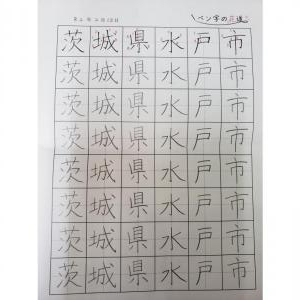 ペン字の
茨城県水戸市
茨城県水戸市
茨城県水戸市
茨城県水戸市
茨城県水戸市
茨城県水戸市
茨城県水戸市
茨城県水戸市